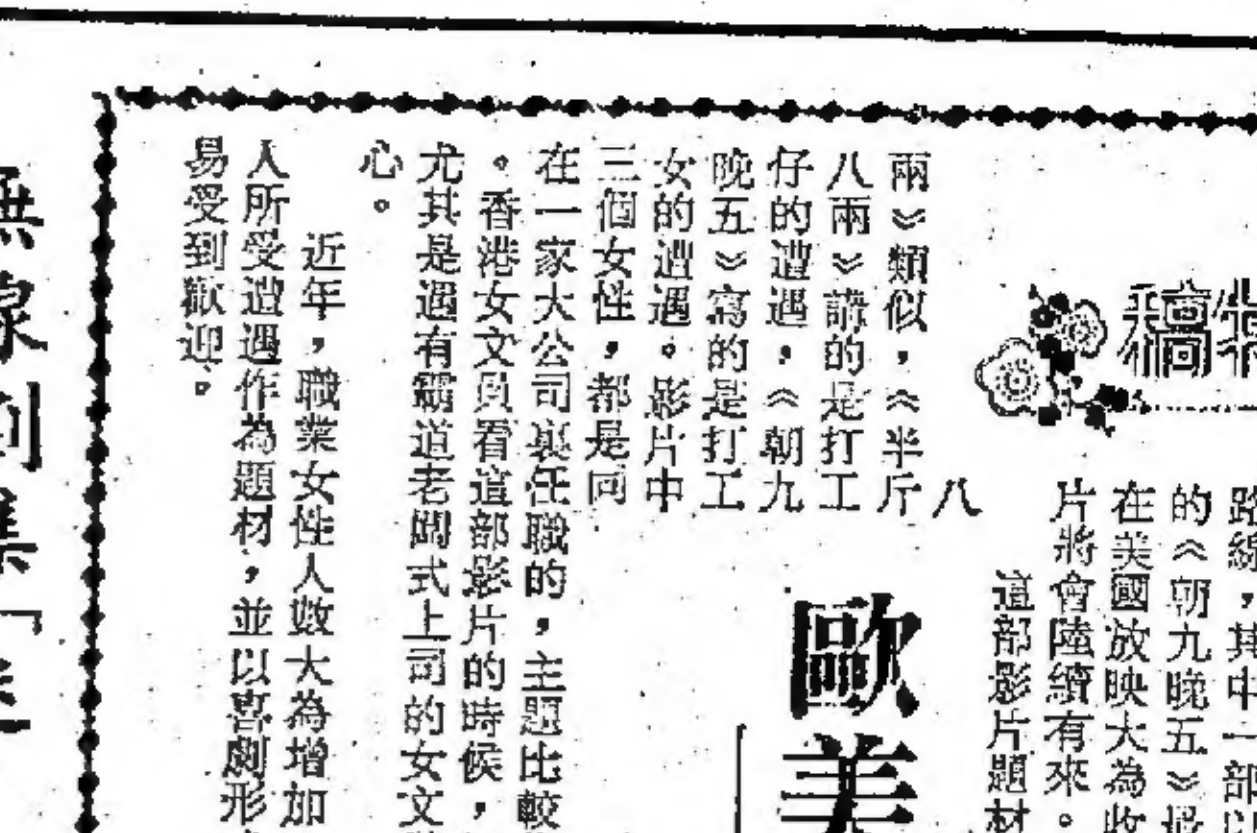 特稿
路線，其中一部以
的《朝九晚五》最
在美國放映大為收
片將會陸續有來。
這部影片題材
八
兩》類似，《半斤
八兩》講的是打工
仔的遭遇，《朝九
晚五》寫的是打工
女的遭遇。影片中
三個女性，都是同
在一家大公司裏任職的，主題比較
。香港女文員看這部影片的時候，
尤其是遇有霸道老闆式上司的女文
心。
近年，職業女性人數大為增加
人所受遭遇作為題材，並以喜劇形
易受到歡迎。
歐美
無線劇集「